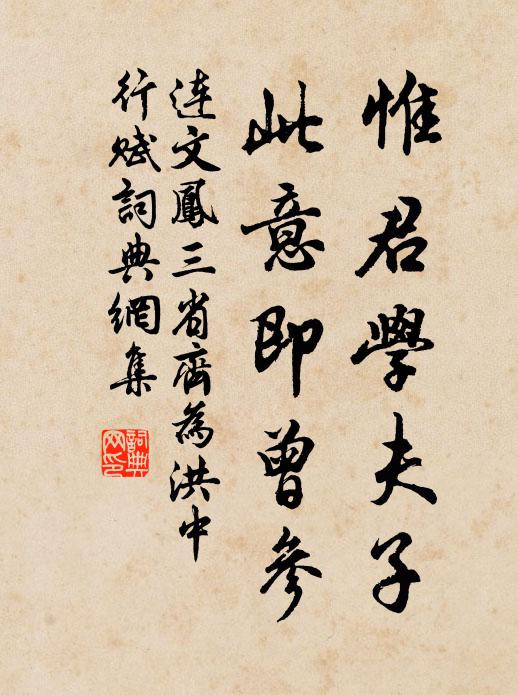 惟君學夫子
此意即曾參
連文鳳三省齊為洪中
行賦詞典網集
詞典
网印